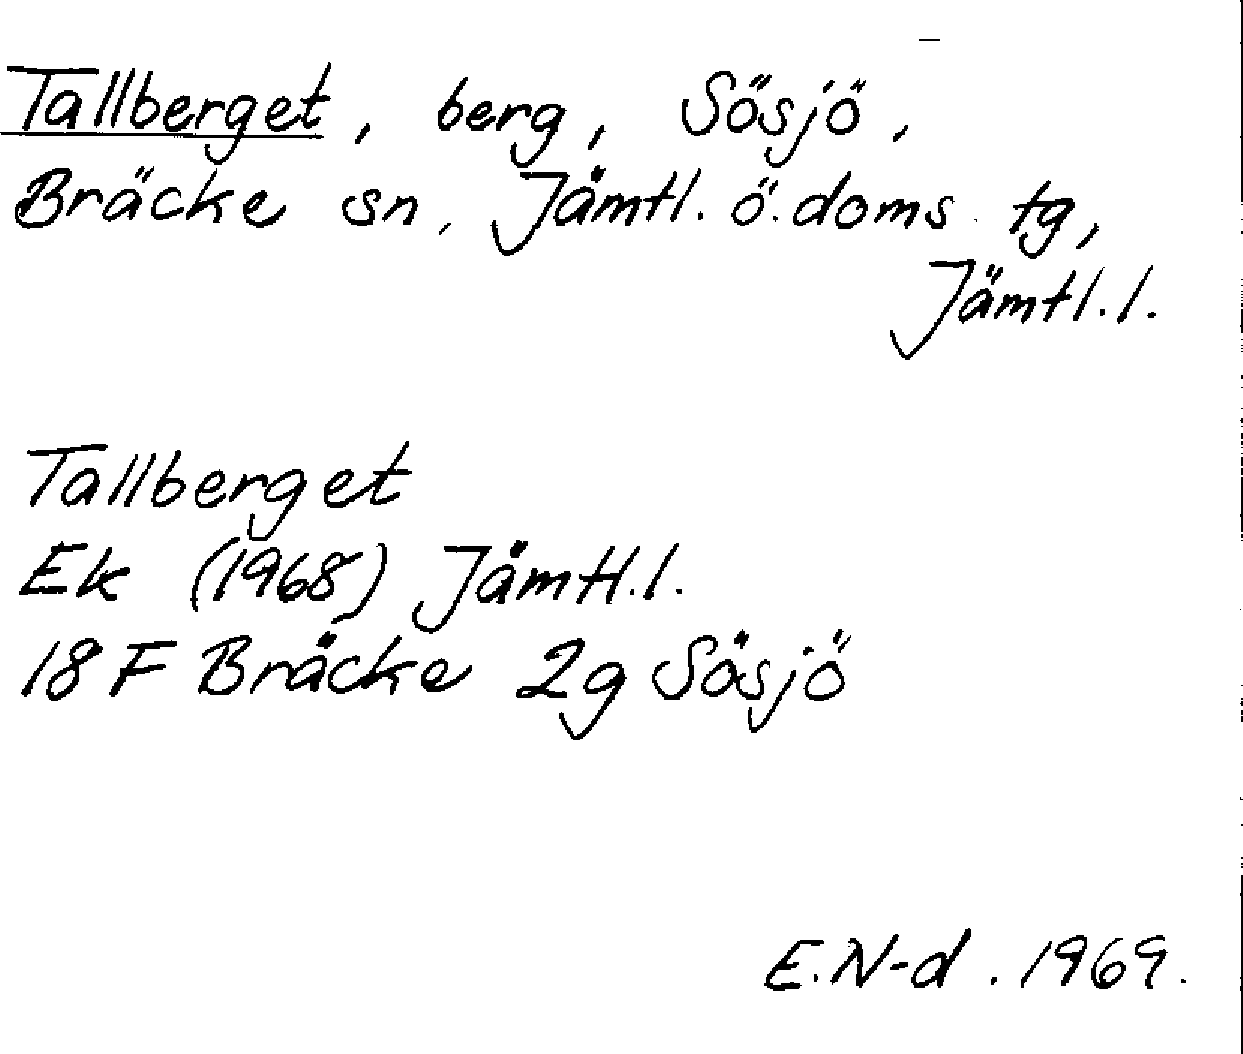 Tallberget, berg, Sösjö,
Bräcke sn, Jämtl. ö. doms. tg,
Jämtl. l.
Tallberget
Ek (1968) Jämtl. l.
18 F Bräcke 2g Sösjö
E. N-d. 1969.